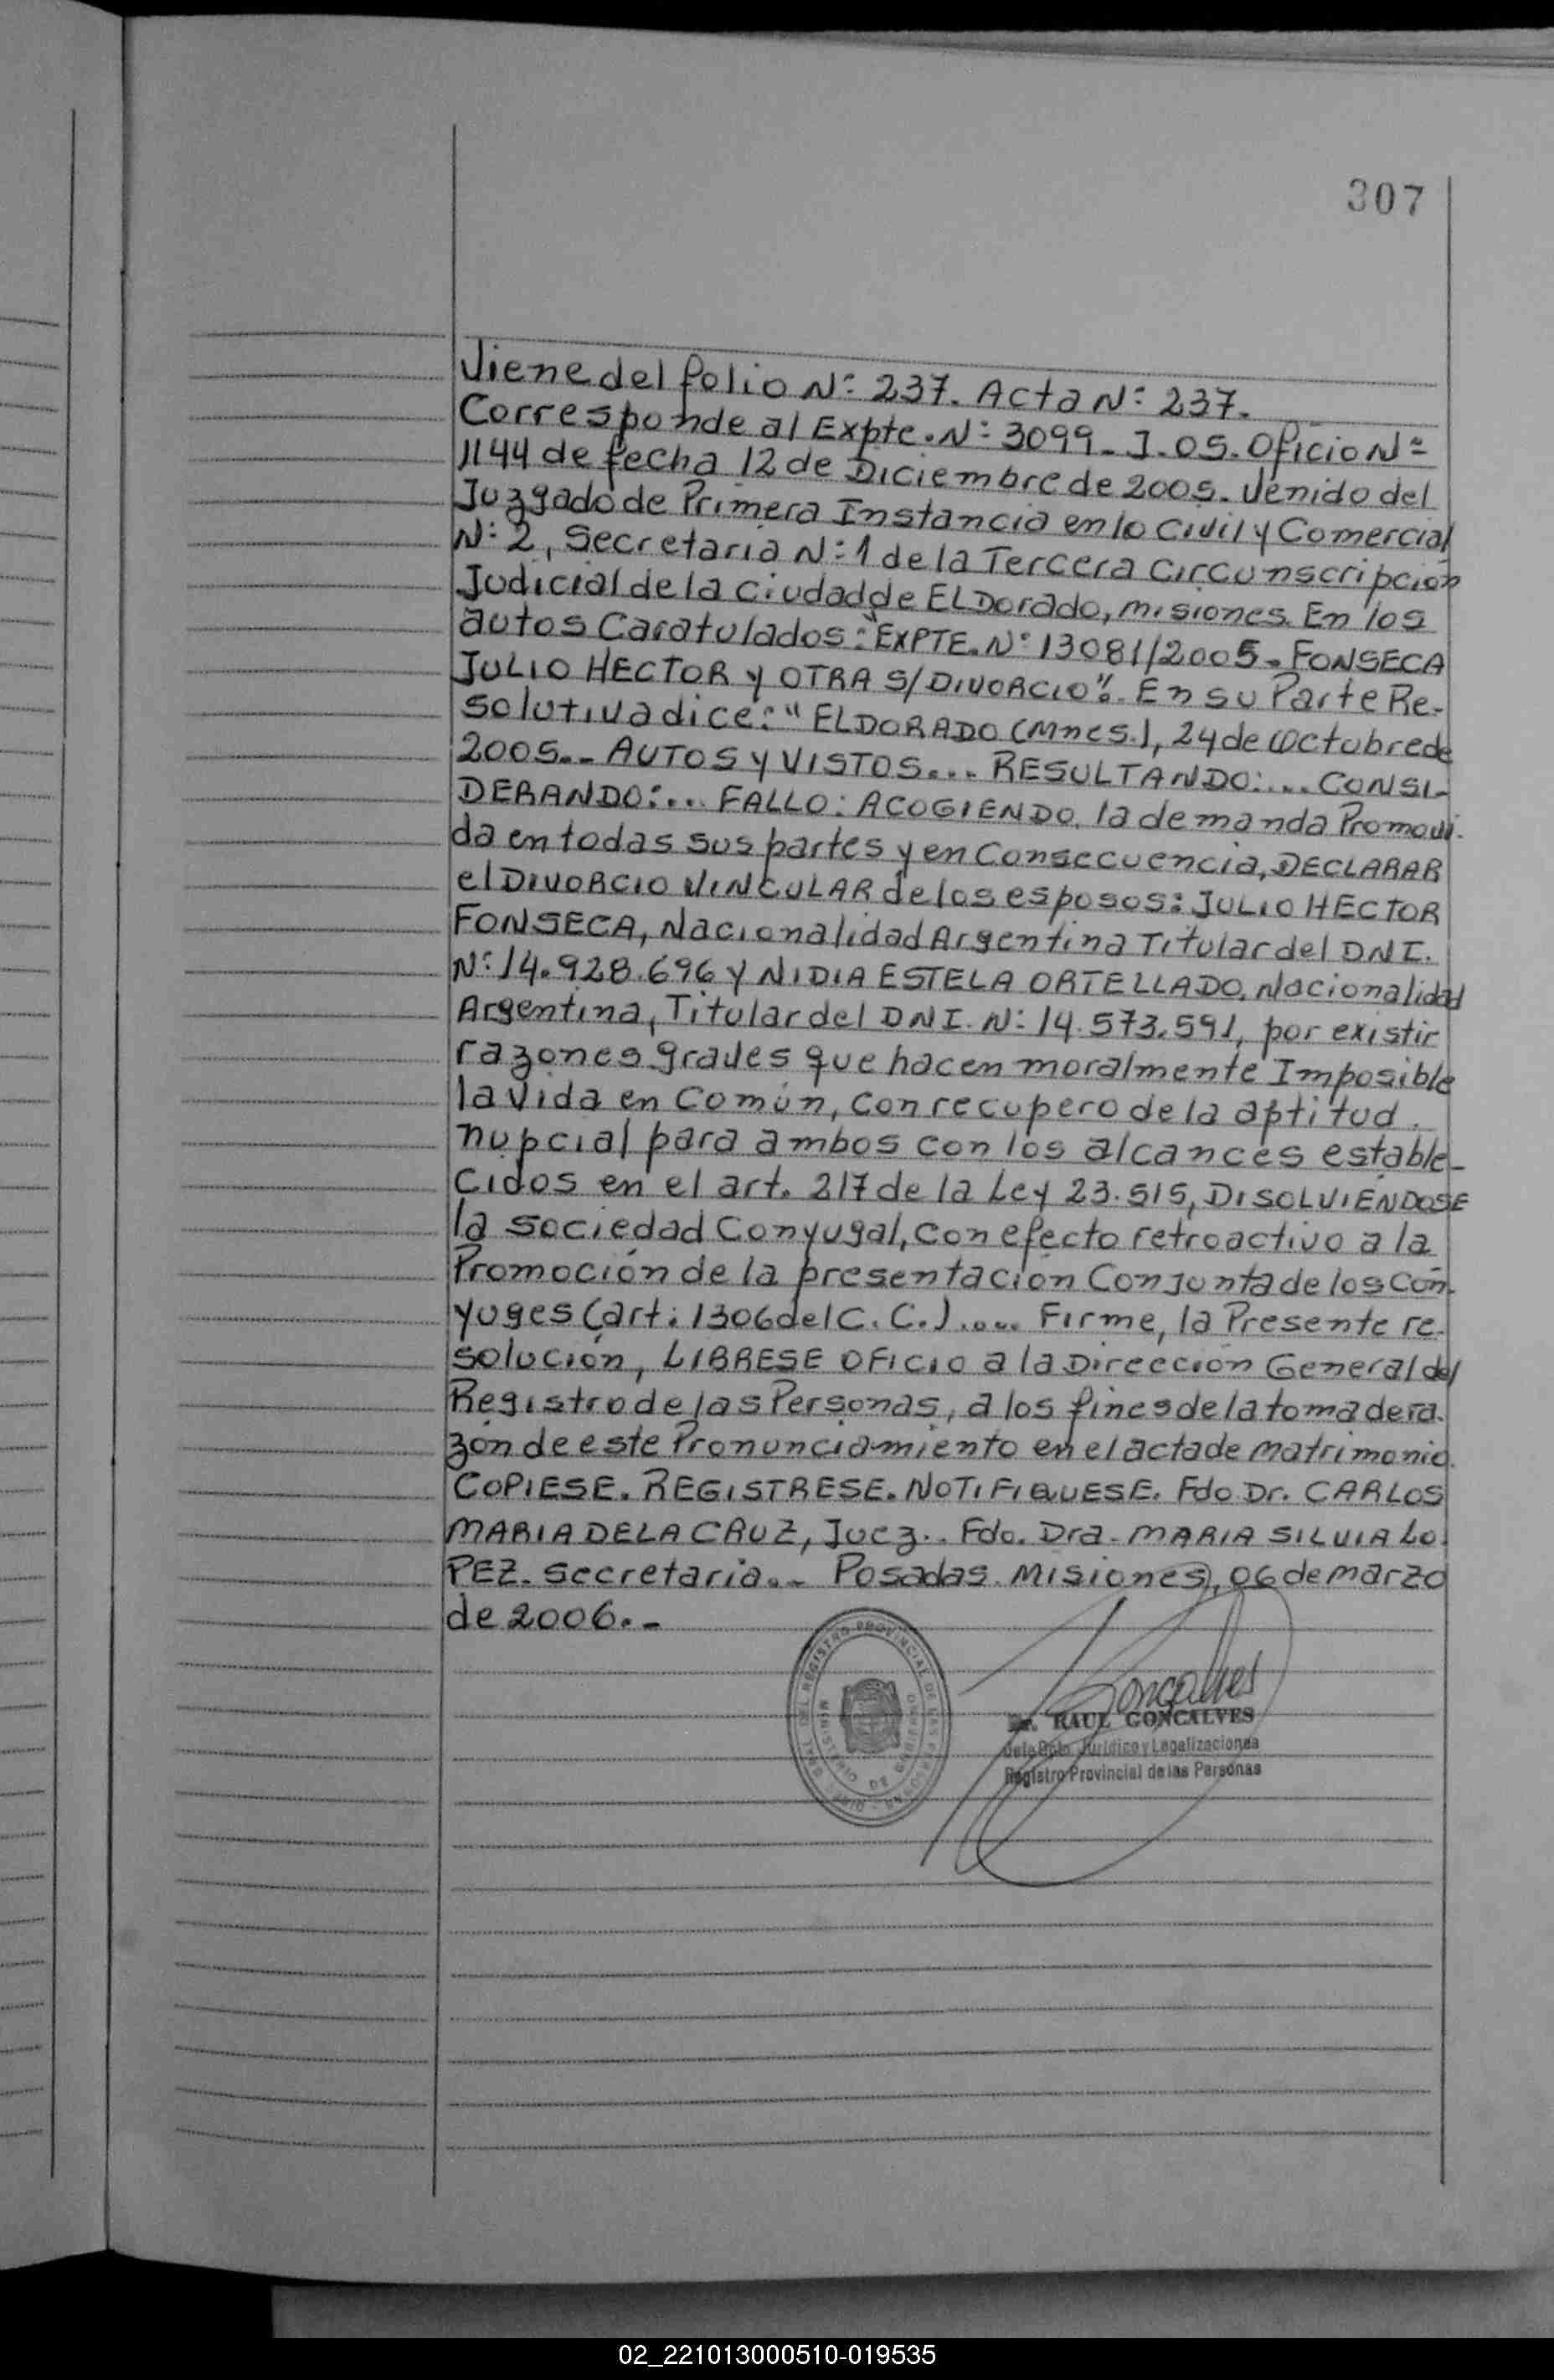 307
Viene del folio N: 237. Acta N: 237.
Corresponde al Expte. N: 3099-J-05. Oficio N=
1144 de fecha 12 de Diciembre de 2005. Venido del
Juzgado de Primera Instancia en lo Civil y Comercial
N: 2, Secretaria N: 1 de la Tercera Circunscripción
Judicial de la Ciudad de ELDorado, misiones. En los
autos Caratulados: "EXPTE. N° 13081/2005. FONSECA
JULIO HECTOR y OTRA S/DIVORCIO". En su Parte Re-
solutiva dice: "ELDORADO (Mnes.), 24 de Octubre de
2005.- AUTOS y VISTOS... RESULTANDO:... CONSI-
DERANDO:... FALLO: ACOGIENDO, la demanda Promovi-
da en todas sus partes y en Consecuencia, DECLARAR
el DIVORCIO VINCULAR de los esposos: JULIO HECTOR
FONSECA, Nacionalidad Argentina Titular del DNI.
N: 14.928.696 y NIDIA ESTELA ORTELLADO, Nacionalidad
Argentina, Titular del DNI. N: 14.573.591, por existir
razones graves que hacen moralmente Imposible
la vida en Común, con recupero de la aptitud
nupcial para ambos con los alcances estable-
cidos en el art. 217 de la Ley 23.515, DISOLVIÉNDOSE
la sociedad Conyugal, con efecto retroactivo a la
Promoción de la presentación Conjunta de los Cón-
yuges (art. 1306 del C.C.).... Firme, la Presente re-
solución, LIBRESE OFICIO a la Dirección General del
Registro de las Personas, a los fines de la toma de ra-
zón de este Pronunciamiento en el acta de matrimonio.
COPIESE. REGISTRESE. NOTIFIQUESE. Fdo Dr. CARLOS
MARIA DE LA CRUZ, Juez.. Fdo. Dra. MARIA SILVIA LO-
PEZ. Secretaria.- Posadas. Misiones), 06 de marzo
de 2006.-
Goncalves
Dr. RAUL GONCALVES
Jefe Dpto. Jurídico y Legalizaciones
Registro Provincial de las Personas
02_221013000510-019535